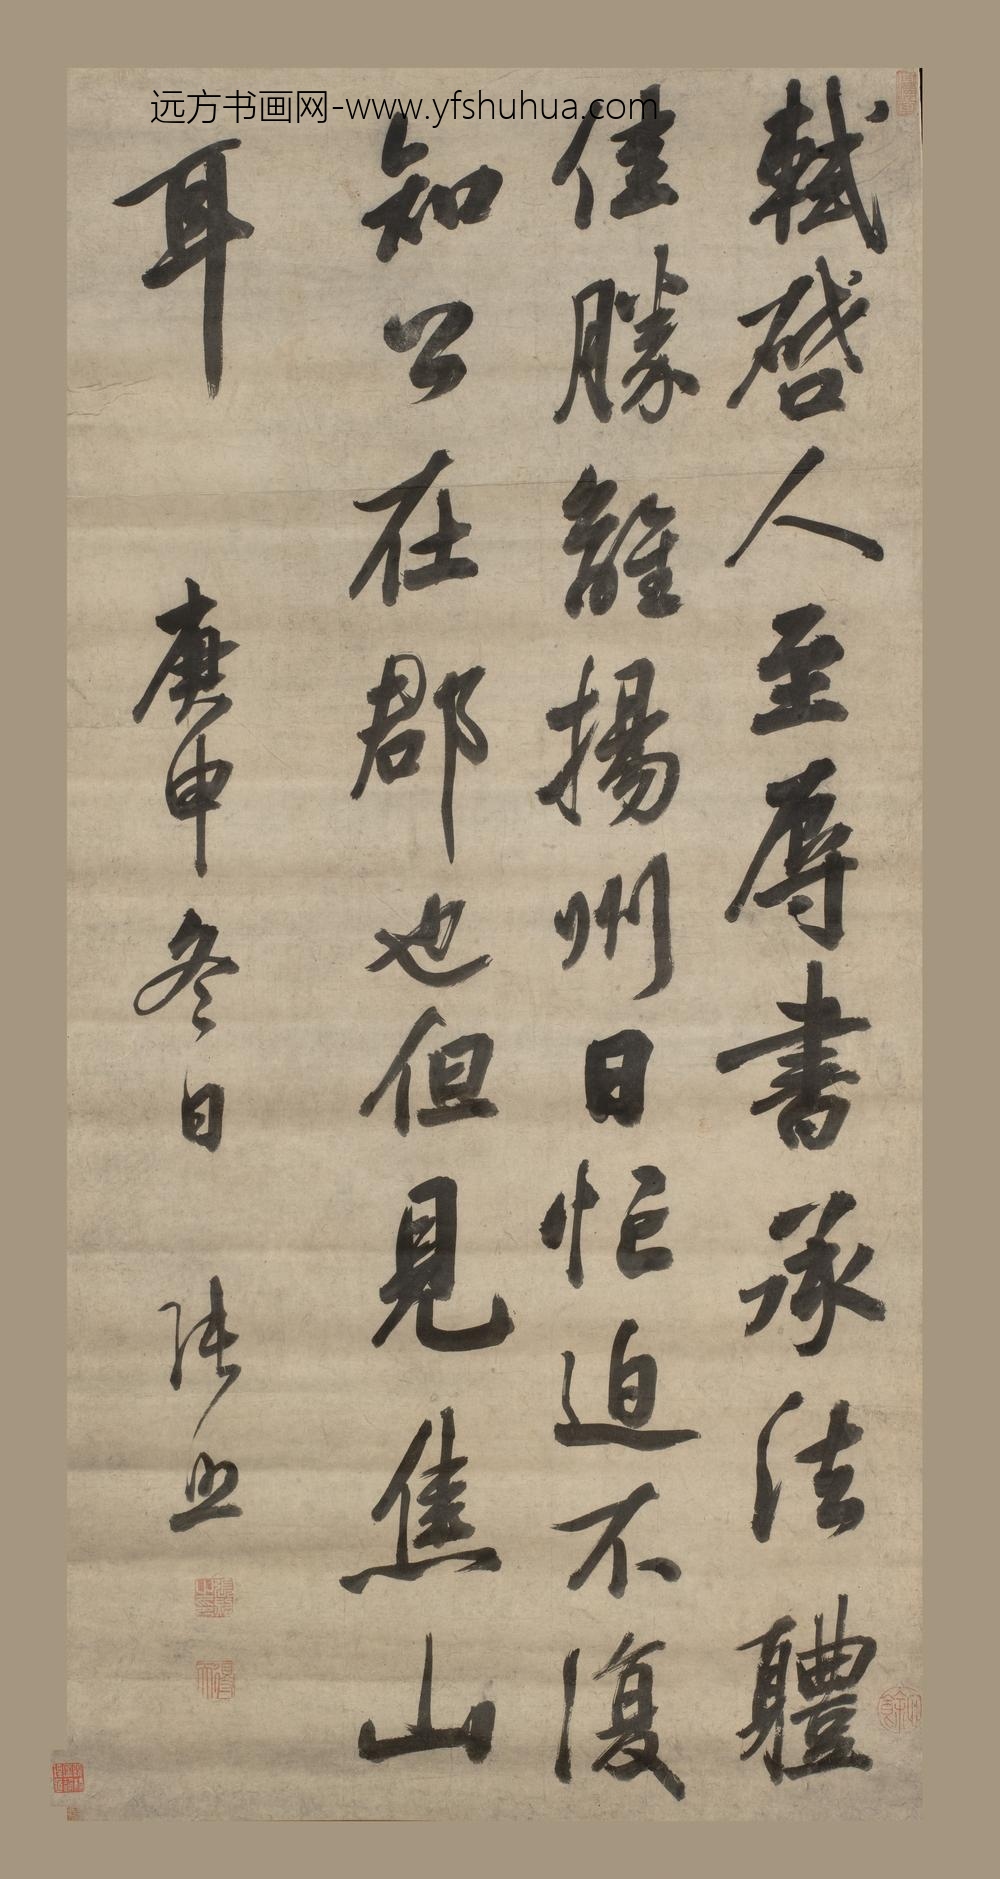 远方书画网-www.yfshuhua.com
軾啓人至辱書承法體
佳勝離揚州日忙迫不復
知公在郡也但見焦山
耳
庚申冬日 張照